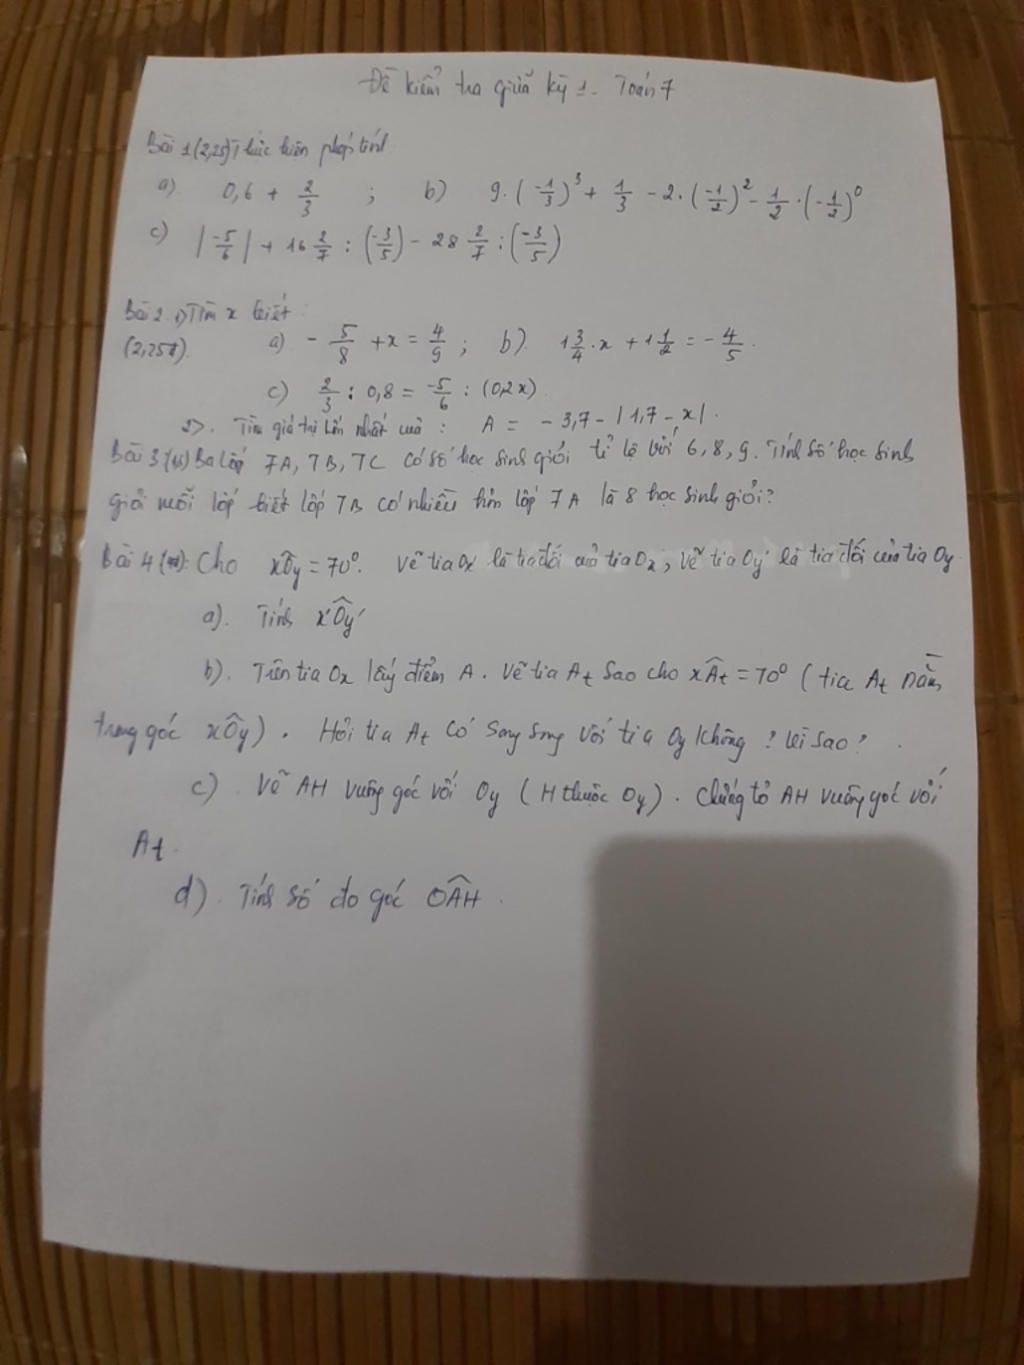 Đề kiểm tra giữa kỳ 1. Toán 7
Bài 1 (2,25) Thực hiện phép tính
a) 0,6 + 2/3 ; b) 9.(-1/3)^3 + 1/3 - 2.(-1/2)^2 - 1/2.(-1/2)^0
c) |-5/6| + 16 2/7 : (-3/5) - 28 2/7 : (-3/5)
Bài 2 1) Tìm x biết :
(2,25đ). a) - 5/8 + x = 4/9 ; b). 1 3/4 . x + 1 1/2 = - 4/5 .
c) 2/3 : 0,8 = -5/6 : (0,2x).
2). Tìm giá trị lớn nhất của : A = - 3,7 - |1,7 - x| .
Bài 3 Ba lớp 7A, 7B, 7C có số học sinh giỏi tỉ lệ với 6, 8, 9. Tính số học sinh
giỏi mỗi lớp biết lớp 7B có nhiều hơn lớp 7A là 8 học sinh giỏi?
Bài 4 Cho xOy = 70°. Vẽ tia Ox' là tia đối của tia Ox, vẽ tia Oy' là tia đối của tia Oy.
a). Tính x'Oy'
b). Trên tia Ox lấy điểm A. Vẽ tia At sao cho xAt = 70° (tia At nằm
trong góc xOy). Hỏi tia At có song song với tia Oy không? Vì sao?
c) Vẽ AH vuông góc với Oy (H thuộc Oy). Chứng tỏ AH vuông góc với
At.
d). Tính số đo góc OAH.